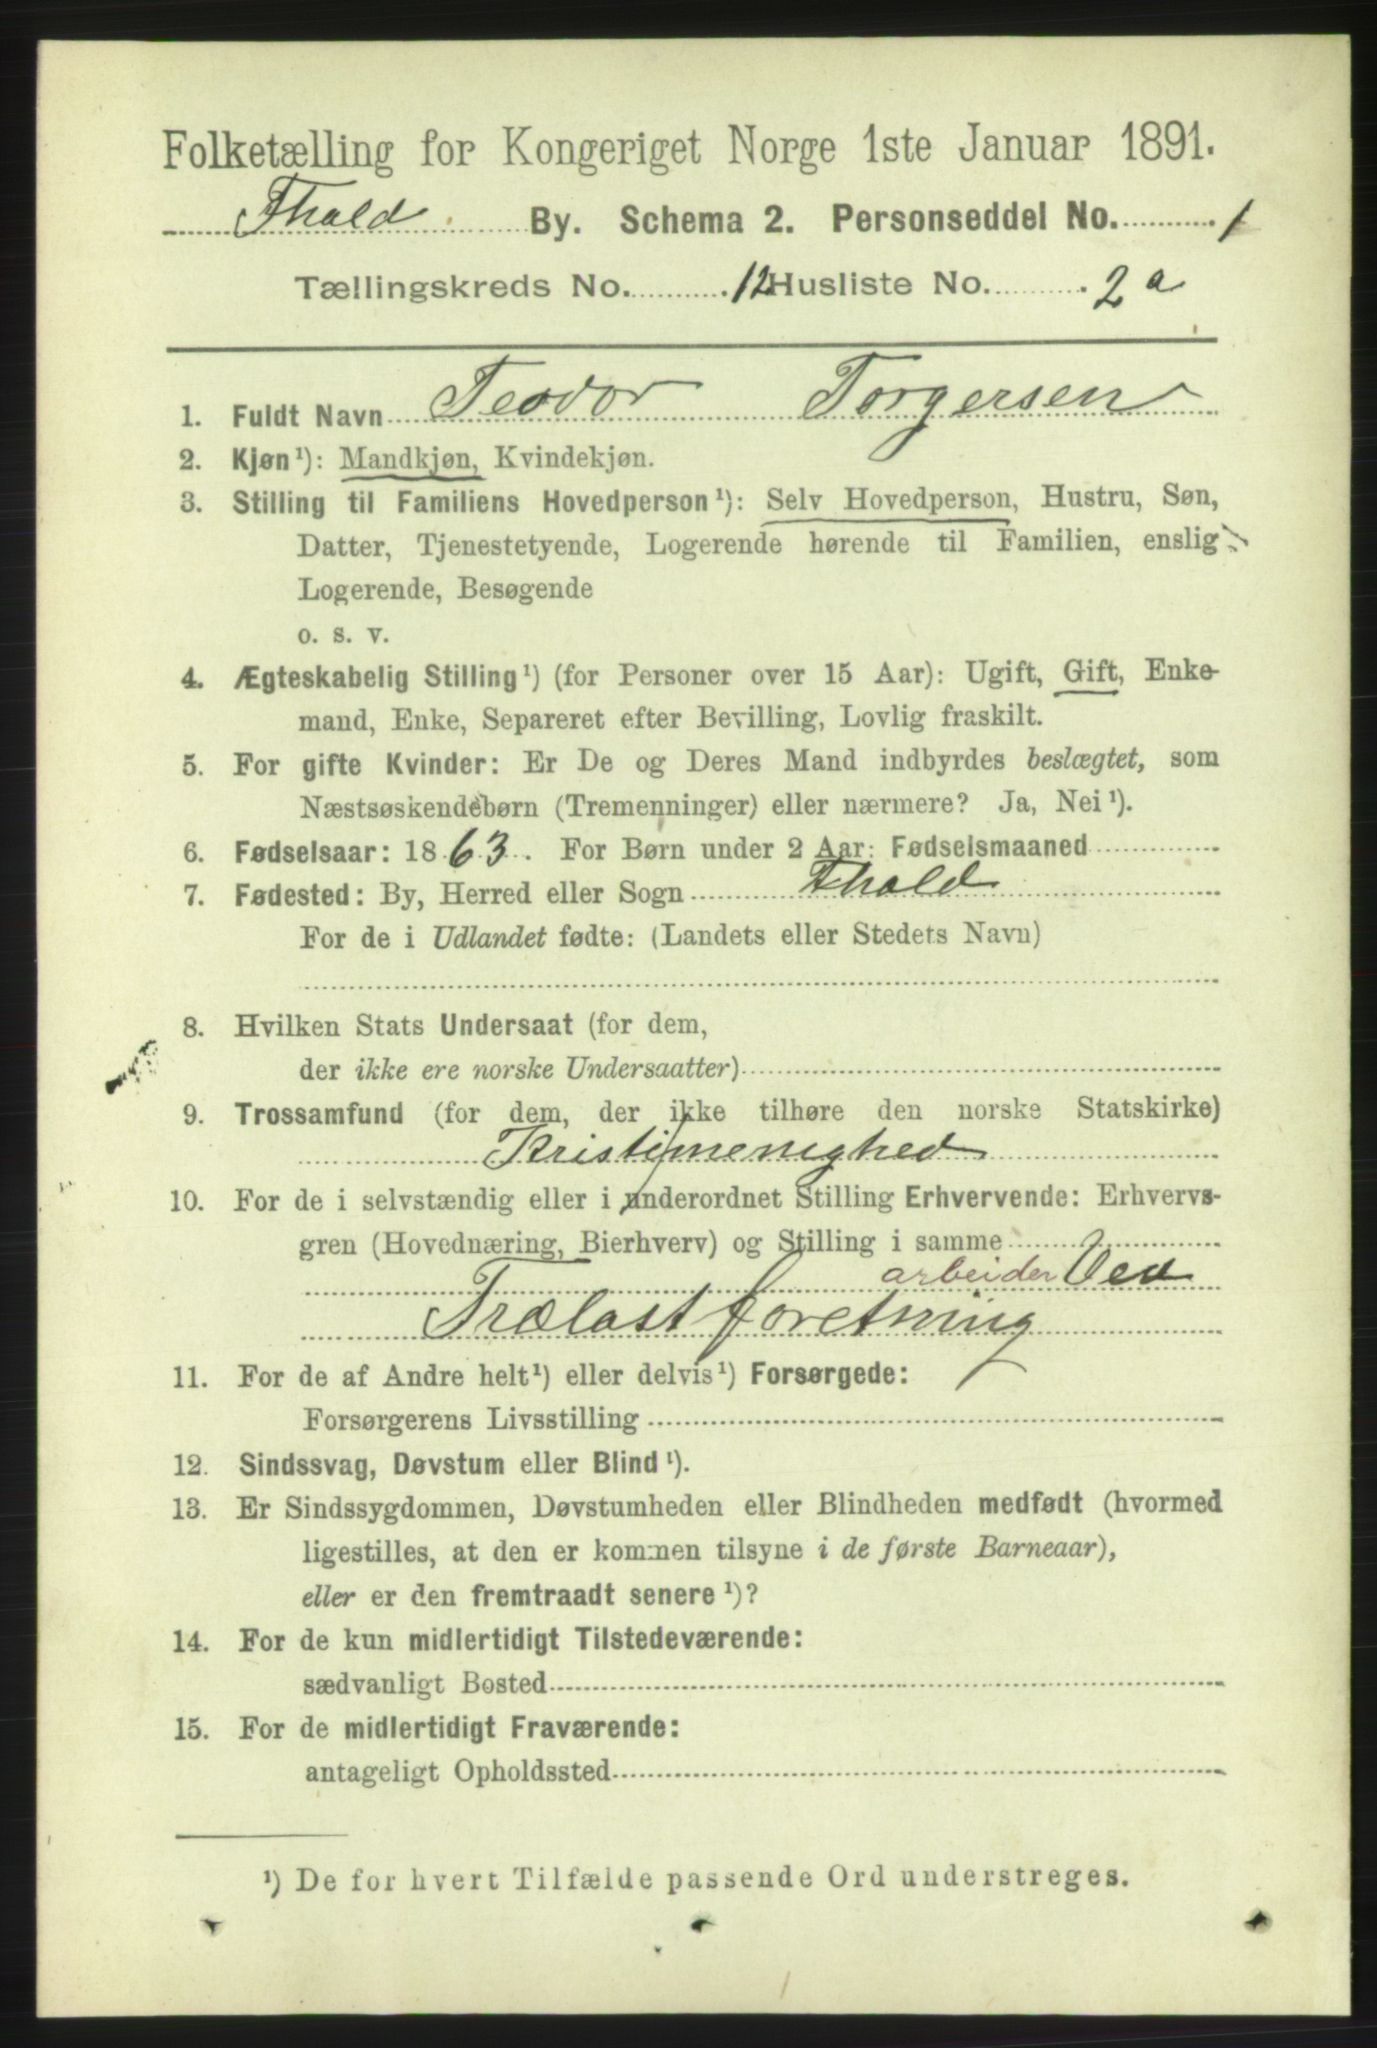 Folketælling for Kongeriget Norge 1ste Januar 1891.
Fhald By. Schema 2. Personseddel No. 1
Tællingskreds No. 12 Husliste No. 2a
1. Fuldt Navn Teodor Torgersen
2. Kjøn¹): Mandkjøn, Kvindekjøn.
3. Stilling til Familiens Hovedperson¹): Selv Hovedperson, Hustru, Søn,
Datter, Tjenestetyende, Logerende hørende til Familien, enslig
Logerende, Besøgende
o. s. v.
4. Ægteskabelig Stilling¹) (for Personer over 15 Aar): Ugift, Gift, Enke-
mand, Enke, Separeret efter Bevilling, Lovlig fraskilt.
5. For gifte Kvinder: Er De og Deres Mand indbyrdes beslægtet, som
Næstsøskendebørn (Tremenninger) eller nærmere? Ja, Nei¹).
6. Fødselsaar: 1863. For Børn under 2 Aar: Fødselsmaaned
7. Fødested: By, Herred eller Sogn Fhald
For de i Udlandet fødte: (Landets eller Stedets Navn)
8. Hvilken Stats Undersaat (for dem,
der ikke ere norske Undersaatter)
9. Trossamfund (for dem, der ikke tilhøre den norske Statskirke)
Kristimenighed
10. For de i selvstændig eller i underordnet Stilling Erhvervende: Erhvervs-
gren (Hovednæring, Bierhverv) og Stilling i samme
arbeider Ved
Trælastforetning
11. For de af Andre helt¹) eller delvis¹) Forsørgede:
Forsørgerens Livsstilling
12. Sindssvag, Døvstum eller Blind¹).
13. Er Sindssygdommen, Døvstumheden eller Blindheden medfødt (hvormed
ligestilles, at den er kommen tilsyne i de første Barneaar),
eller er den fremtraadt senere¹)?
14. For de kun midlertidigt Tilstedeværende:
sædvanligt Bosted
15. For de midlertidigt Fraværende:
antageligt Opholdssted
¹) De for hvert Tilfælde passende Ord understreges.